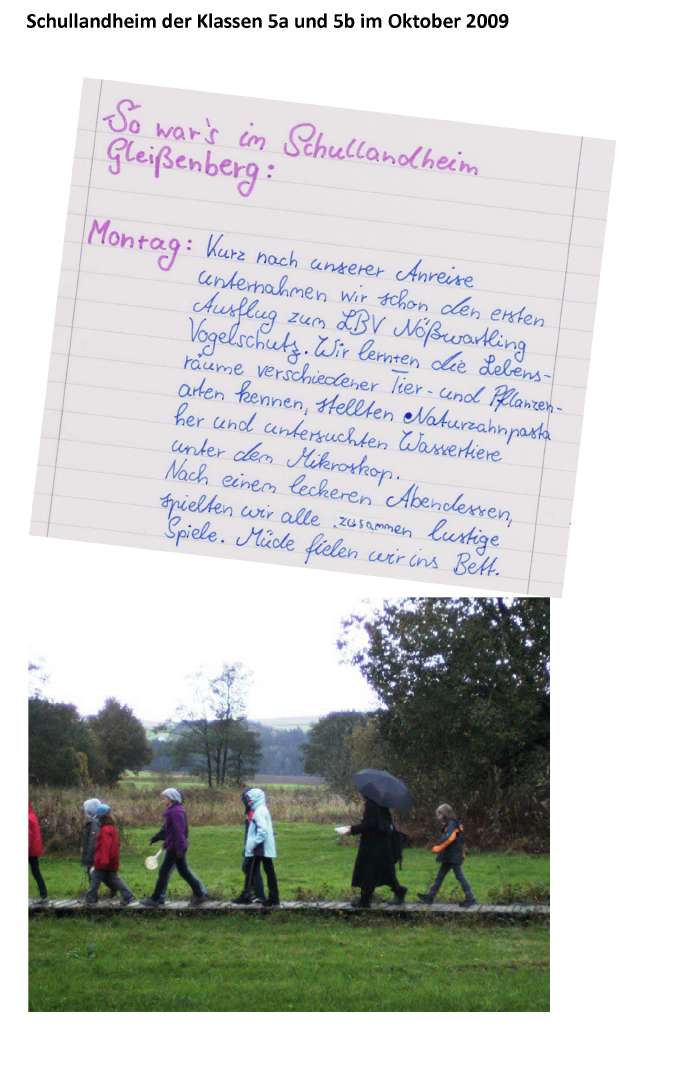 Schullandheim der Klassen 5a und 5b im Oktober 2009
So war's im Schullandheim
Gleißenberg:
Montag: Kurz nach unserer Anreise
unternahmen wir schon den ersten
Ausflug zum LBV Nößwartling
Vogelschutz. Wir lernten die Lebens-
räume verschiedener Tier- und Pflanzen-
arten kennen, stellten Naturzahnpasta
her und untersuchten Wassertiere
unter dem Mikroskop.
Nach einem leckeren Abendessen,
spielten wir alle zusammen lustige
Spiele. Müde fielen wir ins Bett.